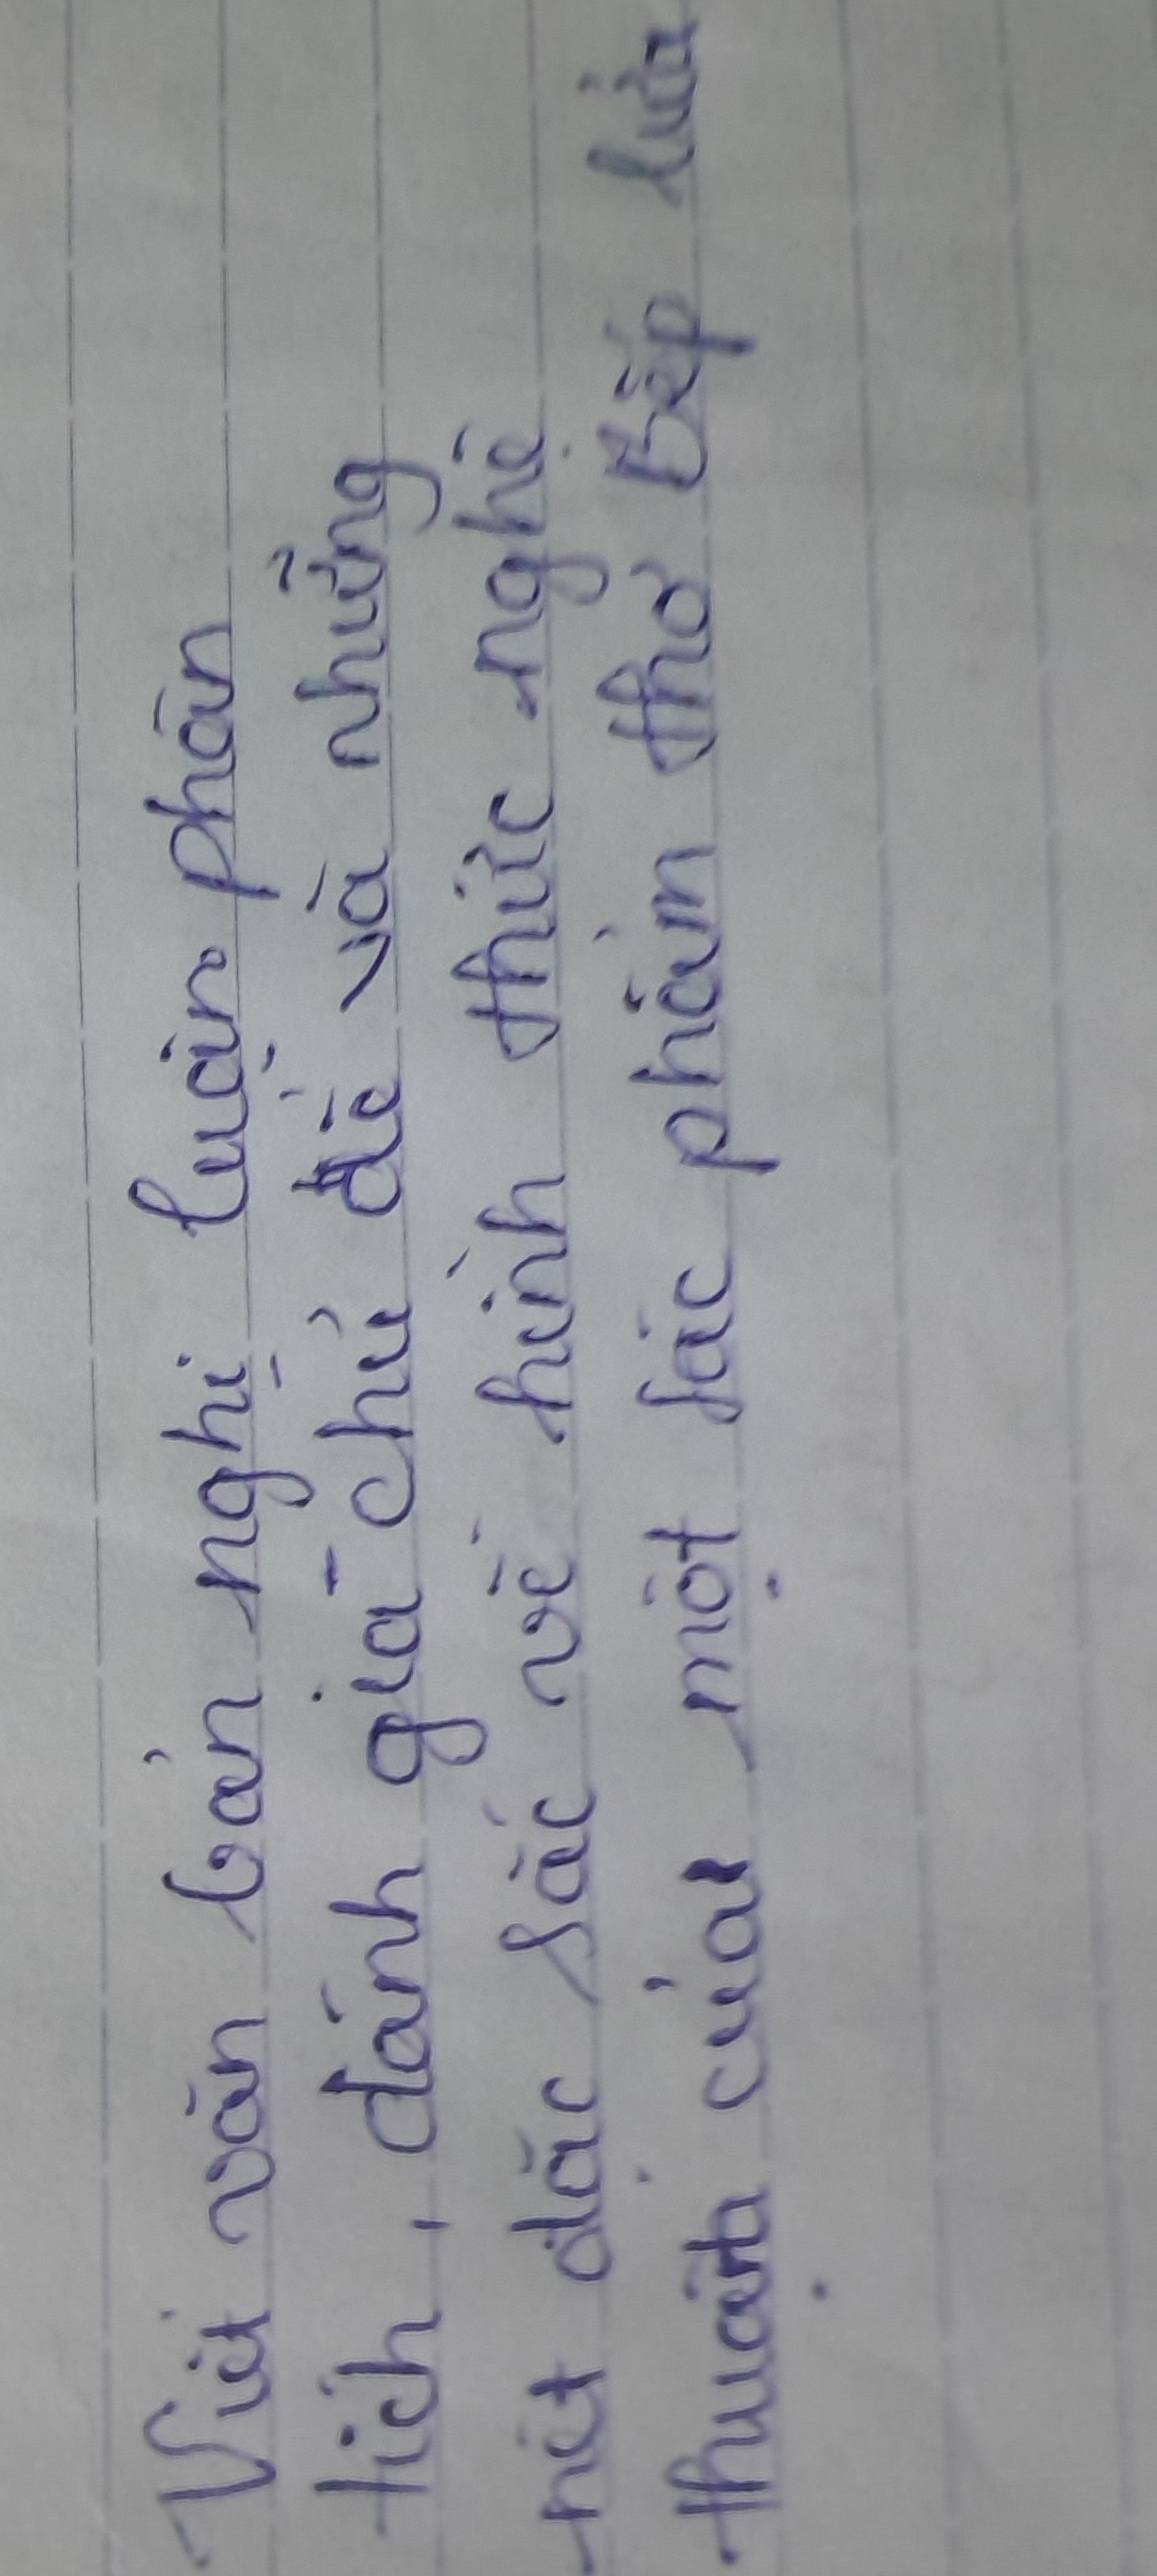 Viết văn bản nghị luận phân
tích, đánh giá chủ đề và những
nét đặc sắc về hình thức nghệ
thuật của một tác phẩm thơ Bếp lửa